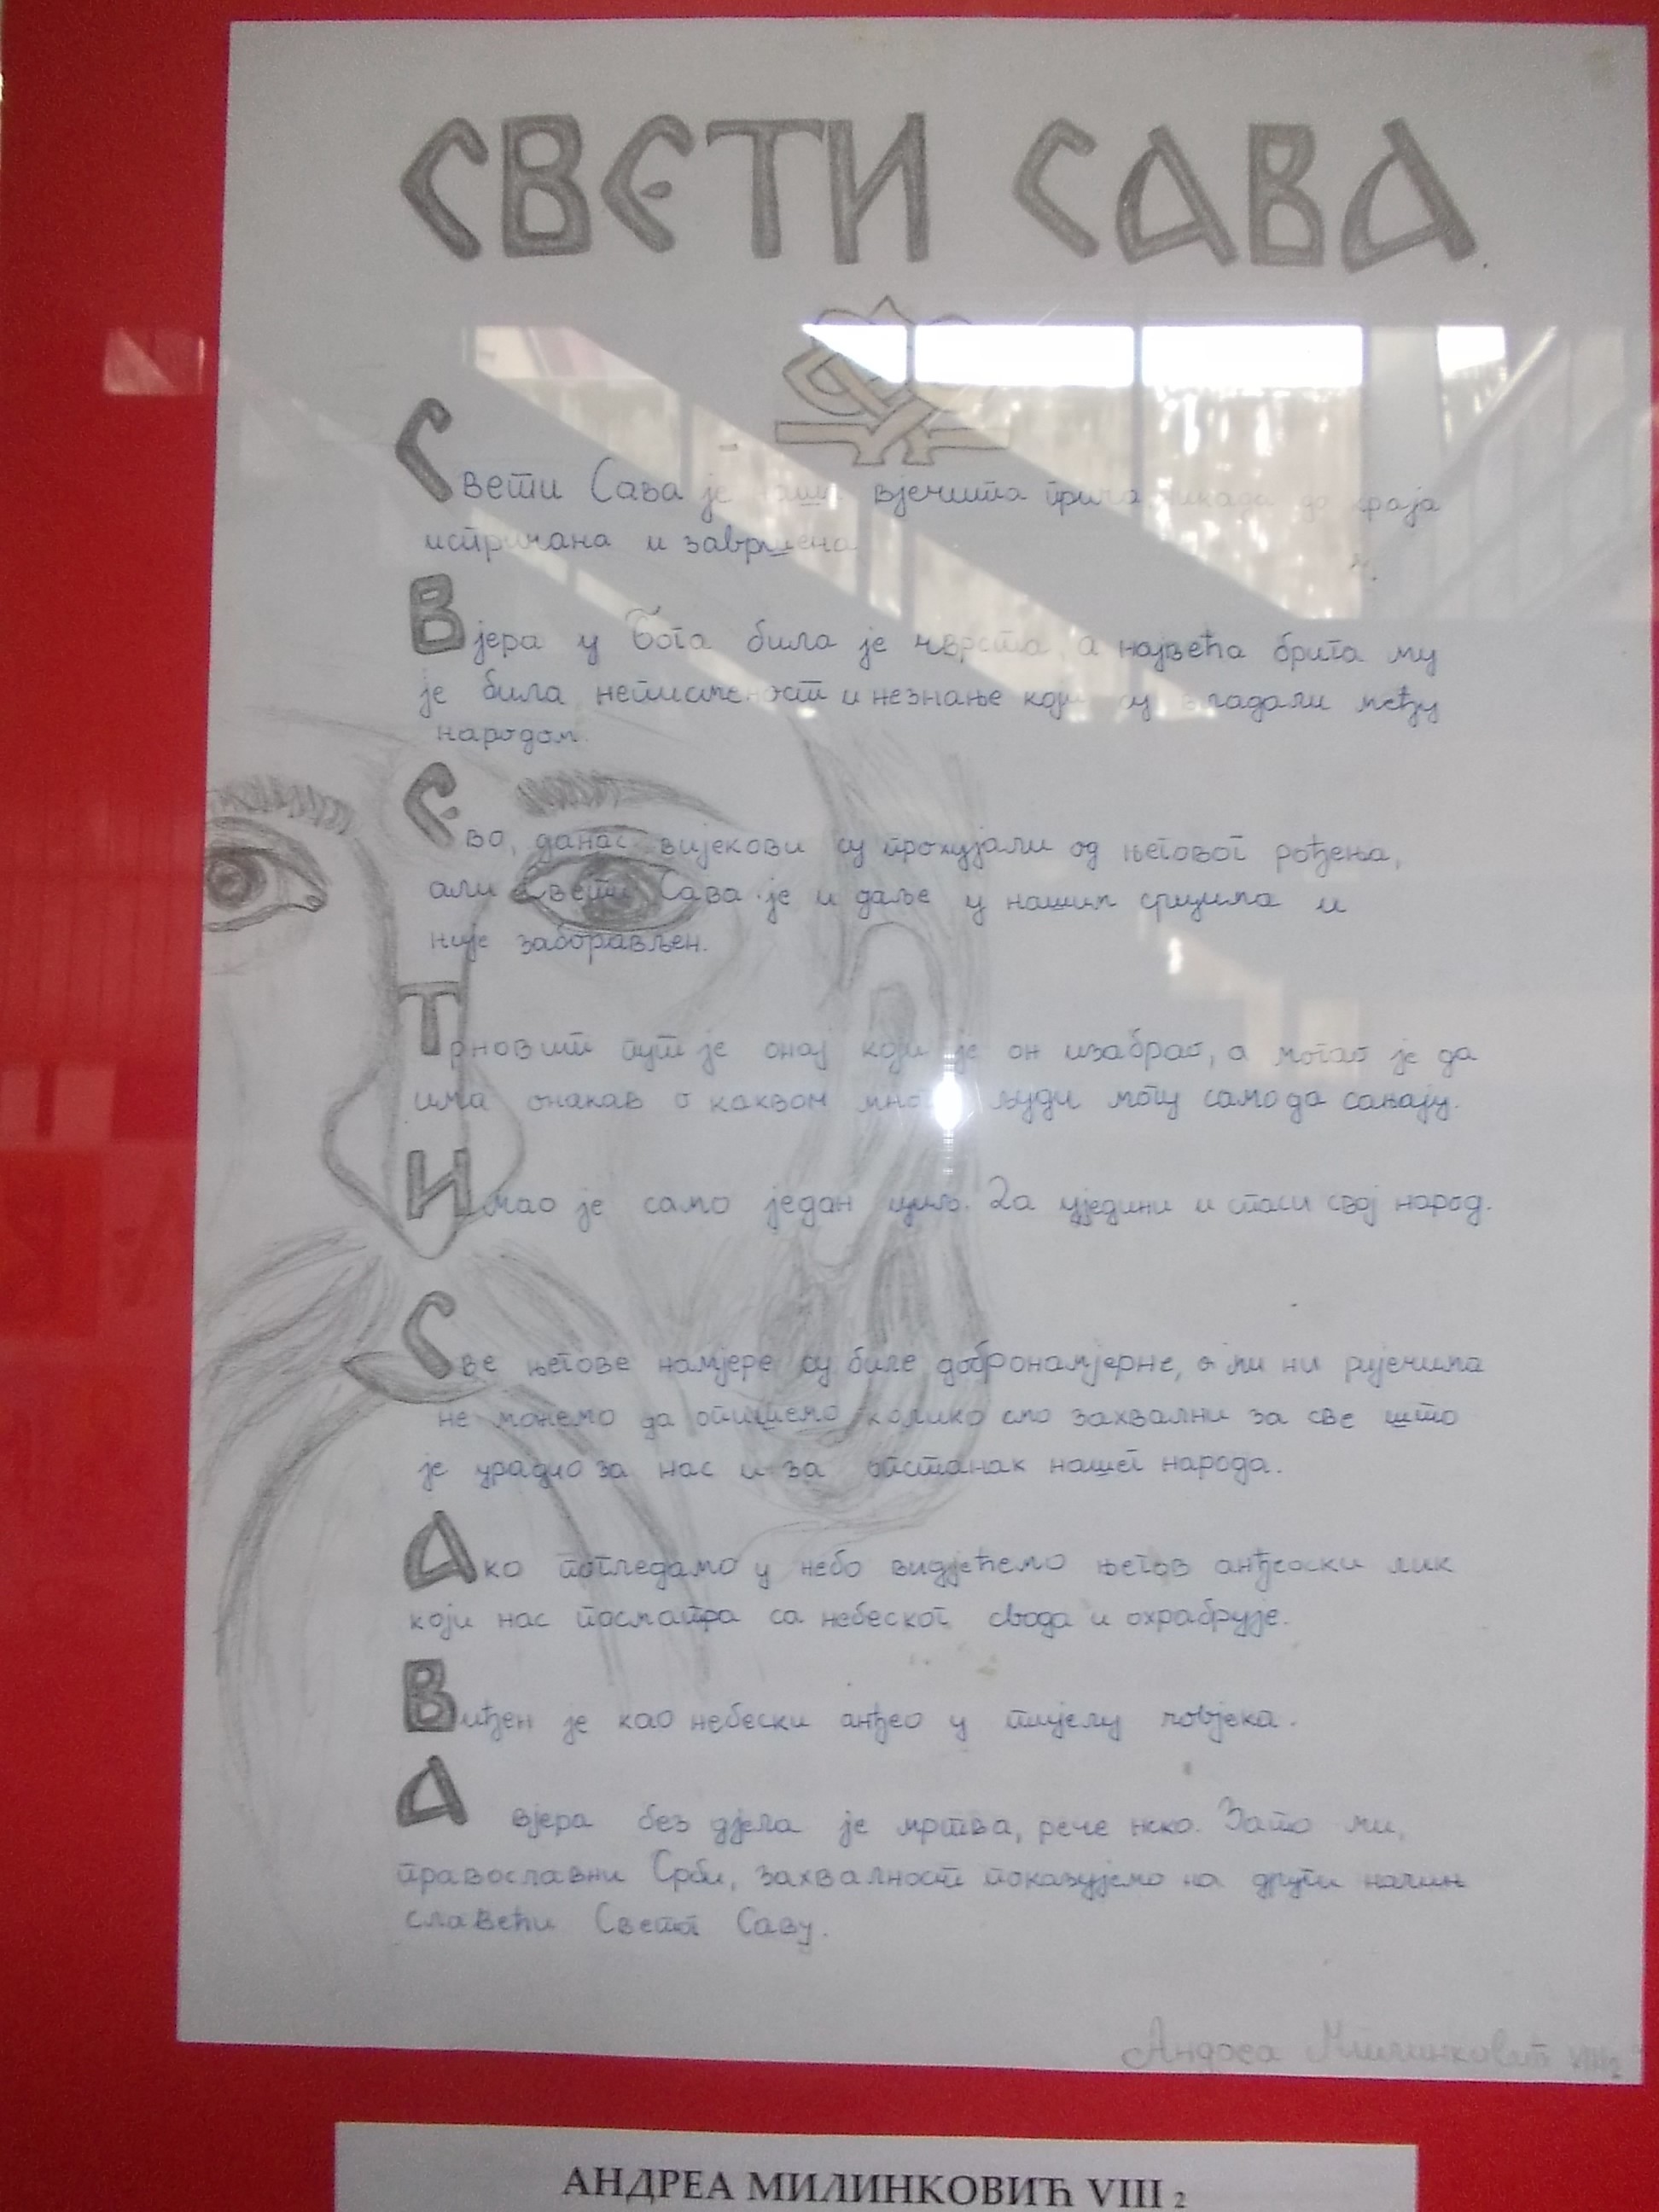 СВЕТИ САВА
Свети Сава је наша вјечита прича никада до краја
испричана и завршена
Вјера у Бога била је чврста, а највећа брига му
је била неписменост и незнање који су владали међу
народом.
Ево, данас вијекови су прохујали од његовог рођења,
али Свети Сава је и даље у нашим срцима и
није заборављен.
Трновит пут је онај који је он изабрао, а могао је да
има онакав о каквом многи људи могу само да сањају.
Имао је само један циљ. Да уједини и спаси свој народ.
Све његове намјере су биле добронамјерне, а ми ни ријечима
не можемо да опишемо колико смо захвални за све што
је урадио за нас и за опстанак нашег народа.
Ако погледамо у небо видјећемо његов анђеоски лик
који нас посматра са небеског свода и охрабрује.
Виђен је као небески анђео у тијелу човјека.
А вјера без дјела је мртва, рече неко. Зато ми,
православни Срби, захвалност показујемо на други начин
славећи Светог Саву.
Андреа Милинковић VIII2
АНДРЕА МИЛИНКОВИЋ VIII 2